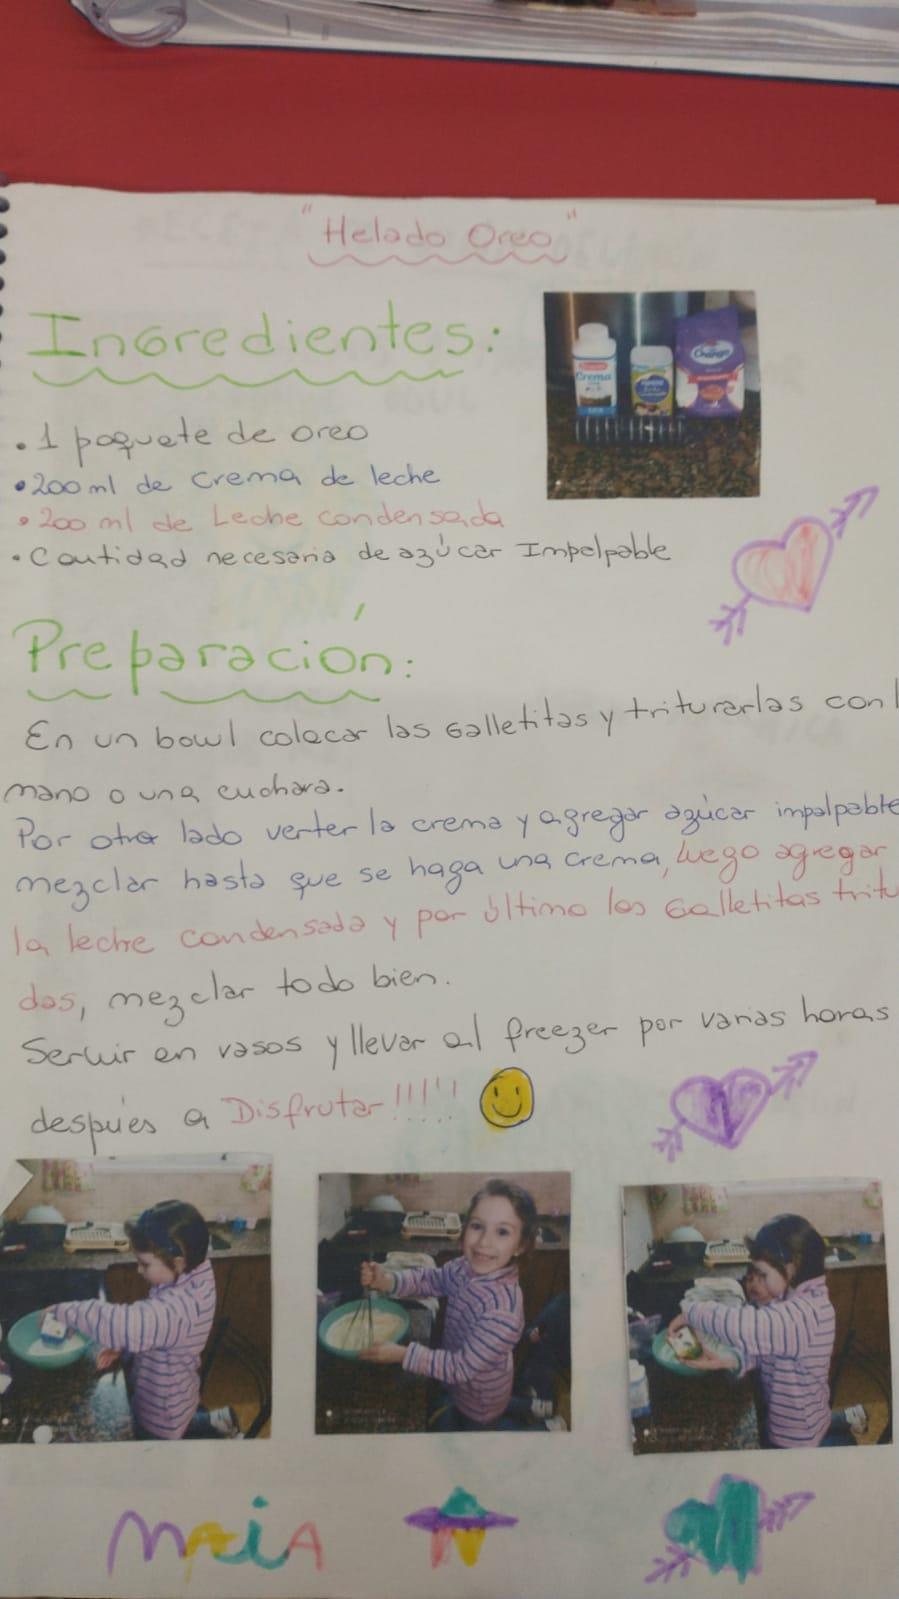 "Helado Oreo"
Ingredientes:
Crema
Chango
• 1 paquete de oreo
• 200 ml de crema de leche
• 200 ml de Leche condensada
• Cantidad necesaria de azúcar Impalpable
Preparación:
En un bowl colocar las Galletitas y triturarlas con l
mano o una cuchara.
Por otro lado verter la crema y agregar azúcar impalpable
mezclar hasta que se haga una crema, luego agregar
la leche condensada y por último las Galletitas tritu
das, mezclar todo bien.
Servir en vasos y llevar al freezer por varias horas
después a Disfrutar!!!!!
MAiA